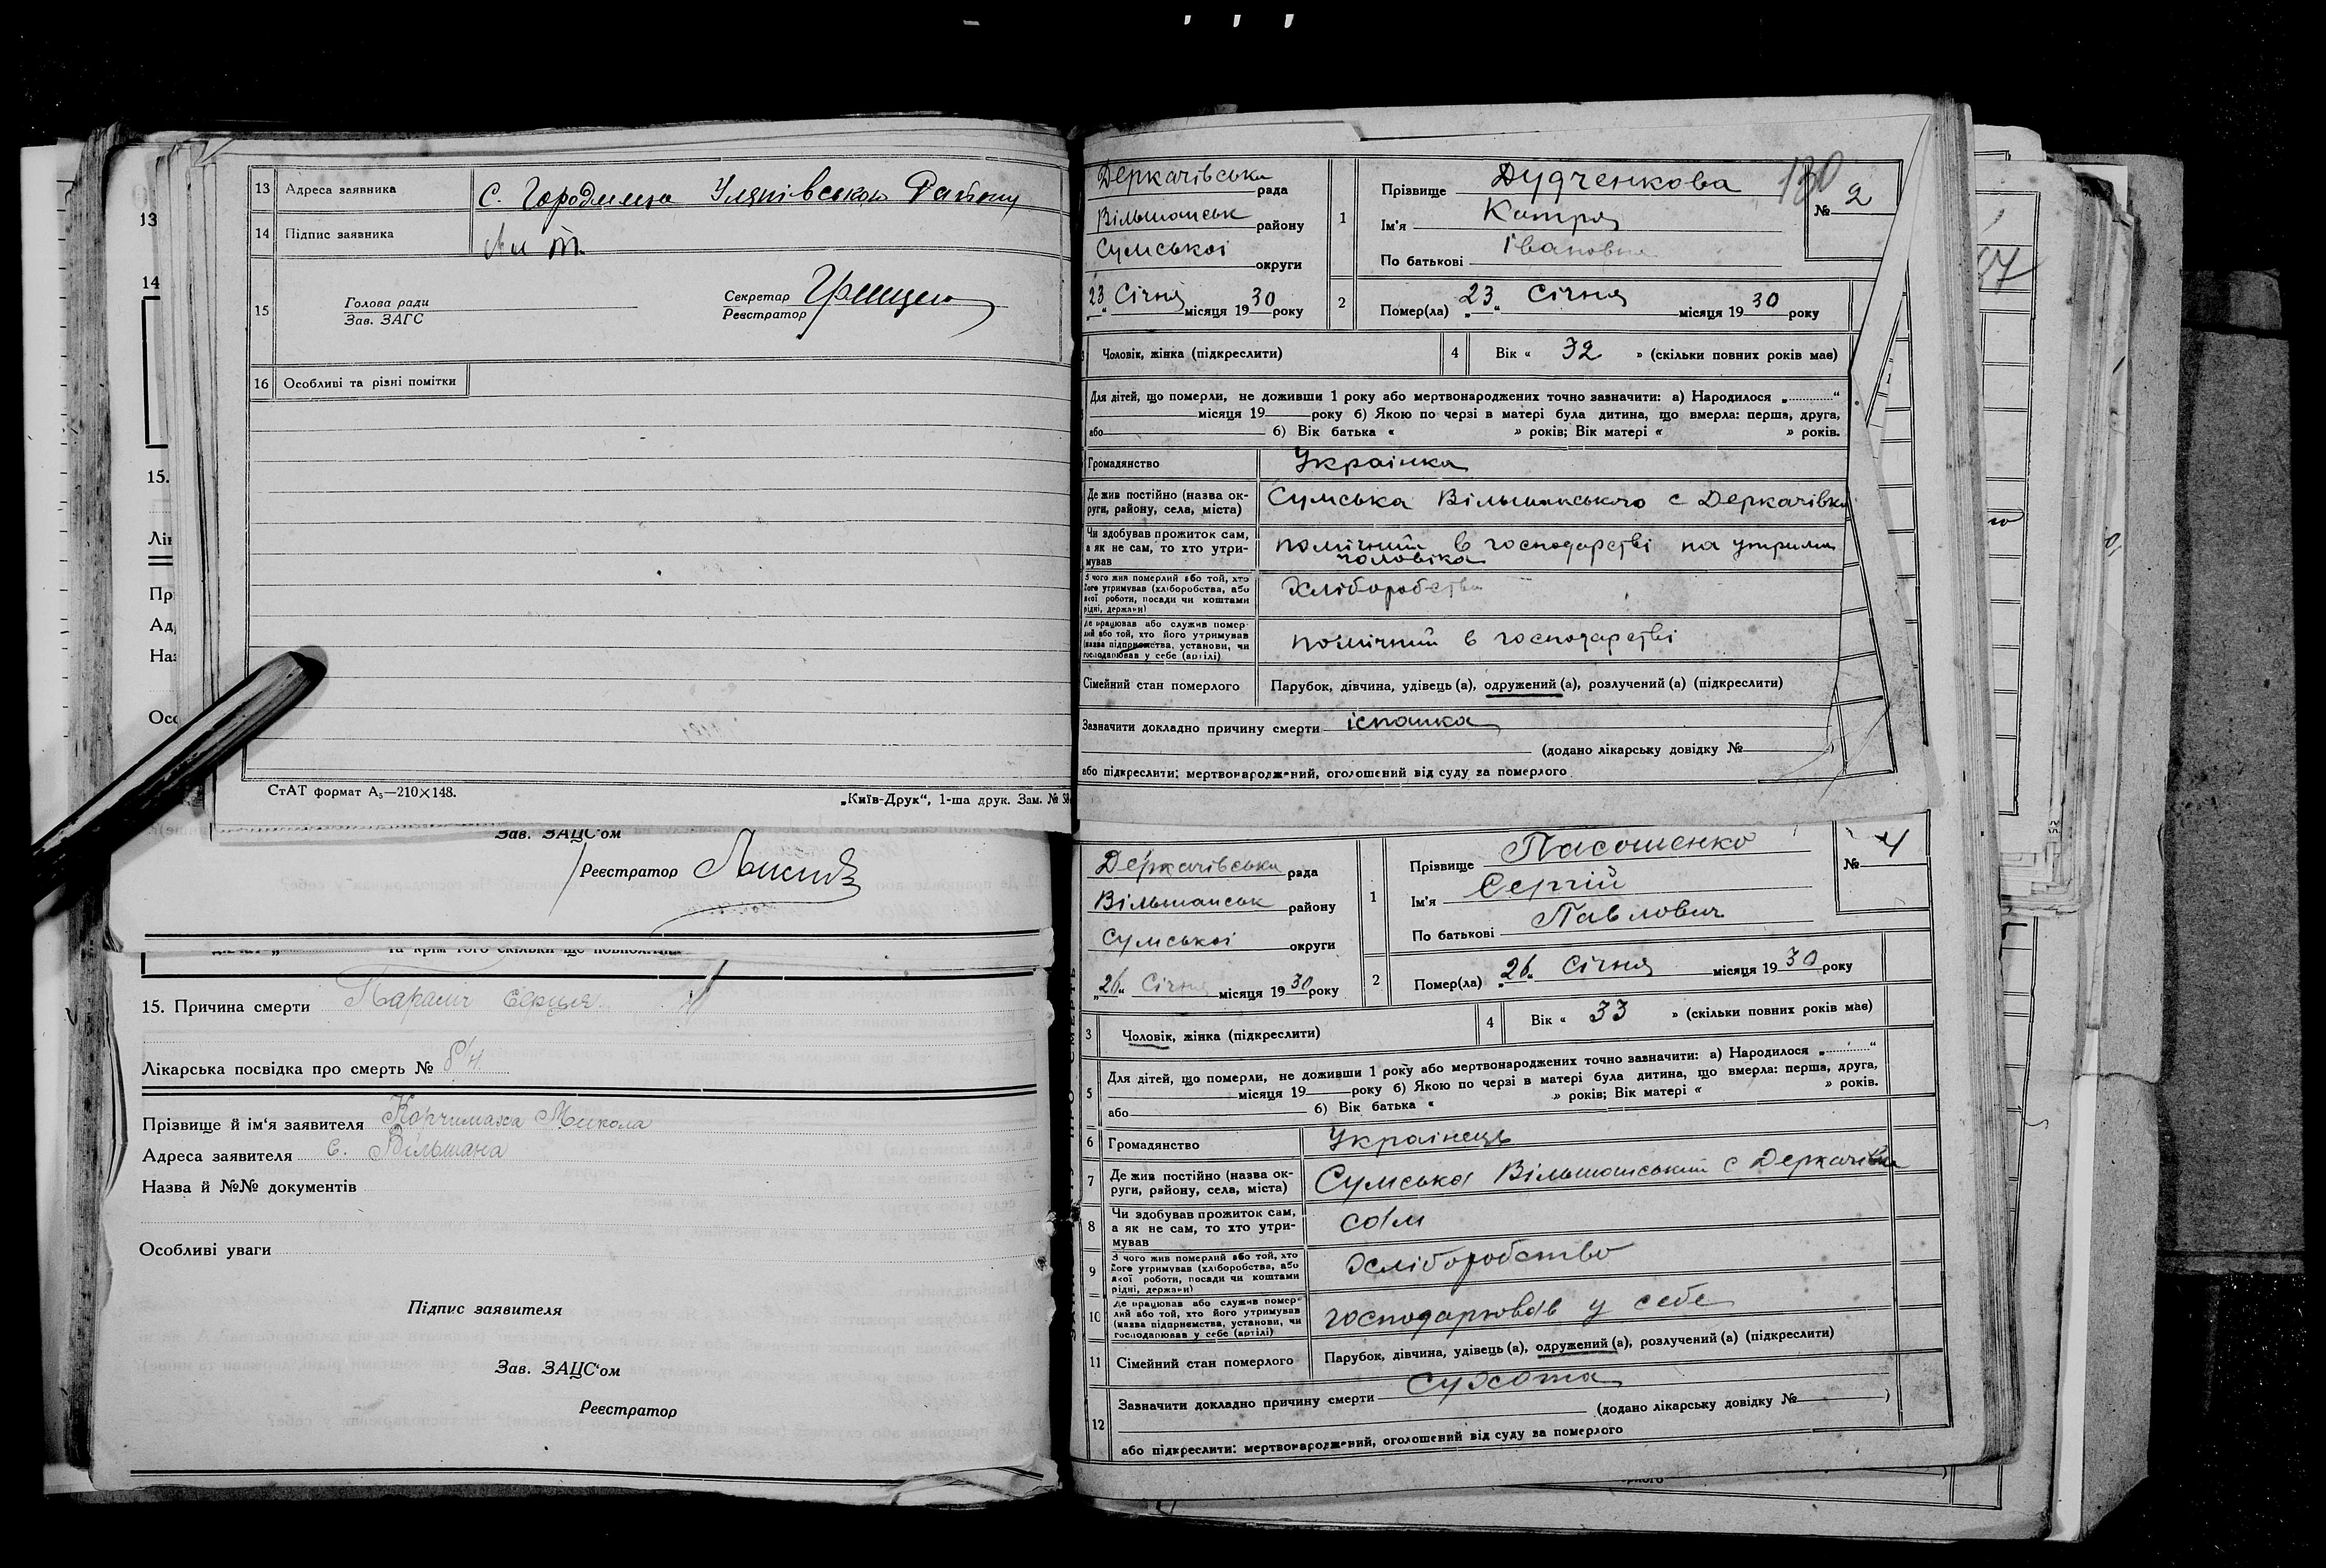 13 Адреса заявника С. Городище Улянівського Району
14 Підпис заявника
15 Голова ради
Зав. ЗАГС
Секретар
Реєстратор
16 Особливі та різні помітки
СтАТ формат А₅—210×148.
„Київ-Друк“, 1-ша друк. Зам. №
Зав. ЗАЦС'ом
Реєстратор
та крім того скільки ще
15. Причина смерти Параліч серця.
Лікарська посвідка про смерть № б/н.
Прізвище й ім'я заявителя Микола
Адреса заявителя с. Вільшана
Назва й №№ документів
Особливі уваги
Підпис заявителя
Зав. ЗАЦС'ом
Реєстратор
13
14
15.
Лі
Пр
Ад
Наз
Осо
Деркачівська рада
Вільшанськ району
Сумської округи
„23“ Січня місяця 1930 року
1 Прізвище Дудченкова
Ім'я Катря
По батькові Івановна
130
№ 2
2 Помер(ла) „23“ Січня місяця 1930 року
Чоловік, жінка (підкреслити)
4 Вік « 32 » (скільки повних років має)
Для дітей, що померли, не доживши 1 року або мертвонароджених точно зазначити: а) Народилося „ “
місяця 19 року б) Якою по черзі в матері була дитина, що вмерла: перша, друга,
або б) Вік батька « » років; Вік матері « » років.
Громадянство Українка
Де жив постійно (назва ок-
руги, району, села, міста) Сумська Вільшанського с Деркачівка
Чи здобував прожиток сам,
а як не сам, то хто утри-
мував помічний в господарстві на утрим
чоловіка
З чого жив померлий або той, хто
його утримував (хліборобства, або
якої роботи, посади чи коштами
рідні, держави) Хліборобства
Де працював або служив помер-
лий або той, хто його утримував
(назва підприємства, установи, чи
господарював у себе (артілі) помічний в господарстві
Сімейний стан померлого Парубок, дівчина, удівець (а), одружений (а), розлучений (а) (підкреслити)
Зазначити докладно причину смерти іспанка
(додано лікарську довідку № )
або підкреслити: мертвонароджений, оголошений від суду за померлого
Деркачівська рада
Вільшанськ району
Сумської округи
„26“ Січня місяця 1930 року
1 Прізвище Пасошенко
Ім'я Сергій
По батькові Павлович
№ 4
2 Помер(ла) „26“ Січня місяця 1930 року
3 Чоловік, жінка (підкреслити)
4 Вік « 33 » (скільки повних років має)
5 Для дітей, що померли, не доживши 1 року або мертвонароджених точно зазначити: а) Народилося „ “
місяця 19 року б) Якою по черзі в матері була дитина, що вмерла: перша, друга,
або б) Вік батька « » років; Вік матері « » років.
6 Громадянство Українець
7 Де жив постійно (назва ок-
руги, району, села, міста) Сумська Вільшанський с Деркачівка
8 Чи здобував прожиток сам,
а як не сам, то хто утри-
мував сам
9 З чого жив померлий або той, хто
його утримував (хліборобства, або
якої роботи, посади чи коштами
рідні, держави) Хліборобство
10 Де працював або служив помер-
лий або той, хто його утримував
(назва підприємства, установи, чи
господарював у себе (артілі) господарював у себе
11 Сімейний стан померлого Парубок, дівчина, удівець (а), одружений (а), розлучений (а) (підкреслити)
12 Зазначити докладно причину смерти Сухота
(додано лікарську довідку № )
або підкреслити: мертвонароджений, оголошений від суду за померлого